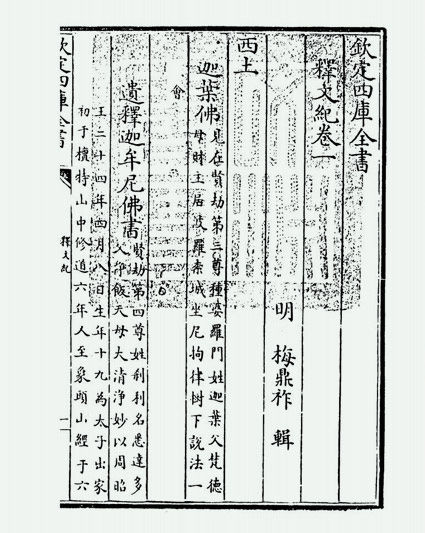 欽定四庫全書
釋文紀卷一
明 梅鼎祚 輯
西土
迦葉佛見在賢劫第三尊種婆羅門姓迦葉父梵德
母財主居波羅柰城坐尼拘律樹下說法一
會
遺釋迦牟尼佛書賢劫第四尊姓剎利名悉達多
父淨飯天母大清淨妙以周昭
王二十四年四月八日生年十九為太子出家
初于檀特山中修道六年人至象頭山經于六
欽定四庫全書
釋文紀
一